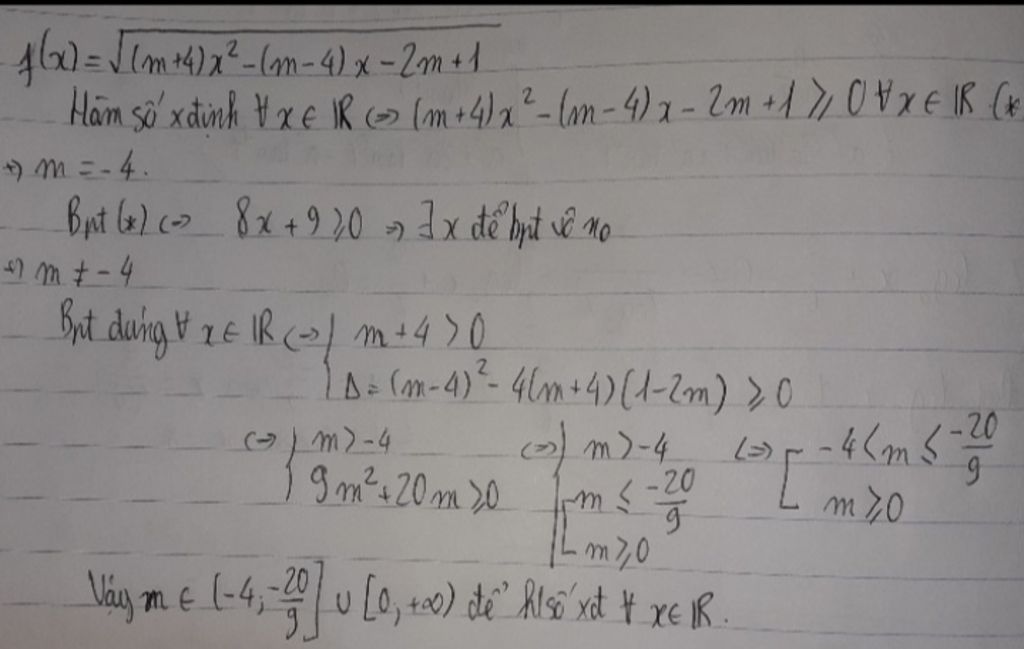 f(x) = √((m+4)x² - (m-4)x - 2m + 1)
Hàm số xđịnh ∀ x ∈ ℝ ⇔ (m+4)x² - (m-4)x - 2m + 1 ≥ 0 ∀ x ∈ ℝ (*
+) m = -4.
Bpt (*) ⇔ 8x + 9 ≥ 0 ⇒ ∃ x để bpt vô no
+) m ≠ -4
Bpt đúng ∀ x ∈ ℝ ⇔ { m + 4 > 0
Δ = (m-4)² - 4(m+4)(1-2m) ≥ 0
⇔ { m > -4 ⇔ { m > -4 ⇔ [ -4 < m ≤ -20/9
9m² + 20m ≥ 0 [ m ≤ -20/9 m ≥ 0
m ≥ 0
Vậy m ∈ (-4; -20/9] ∪ [0, +∞) để h/số xđ ∀ x ∈ ℝ.